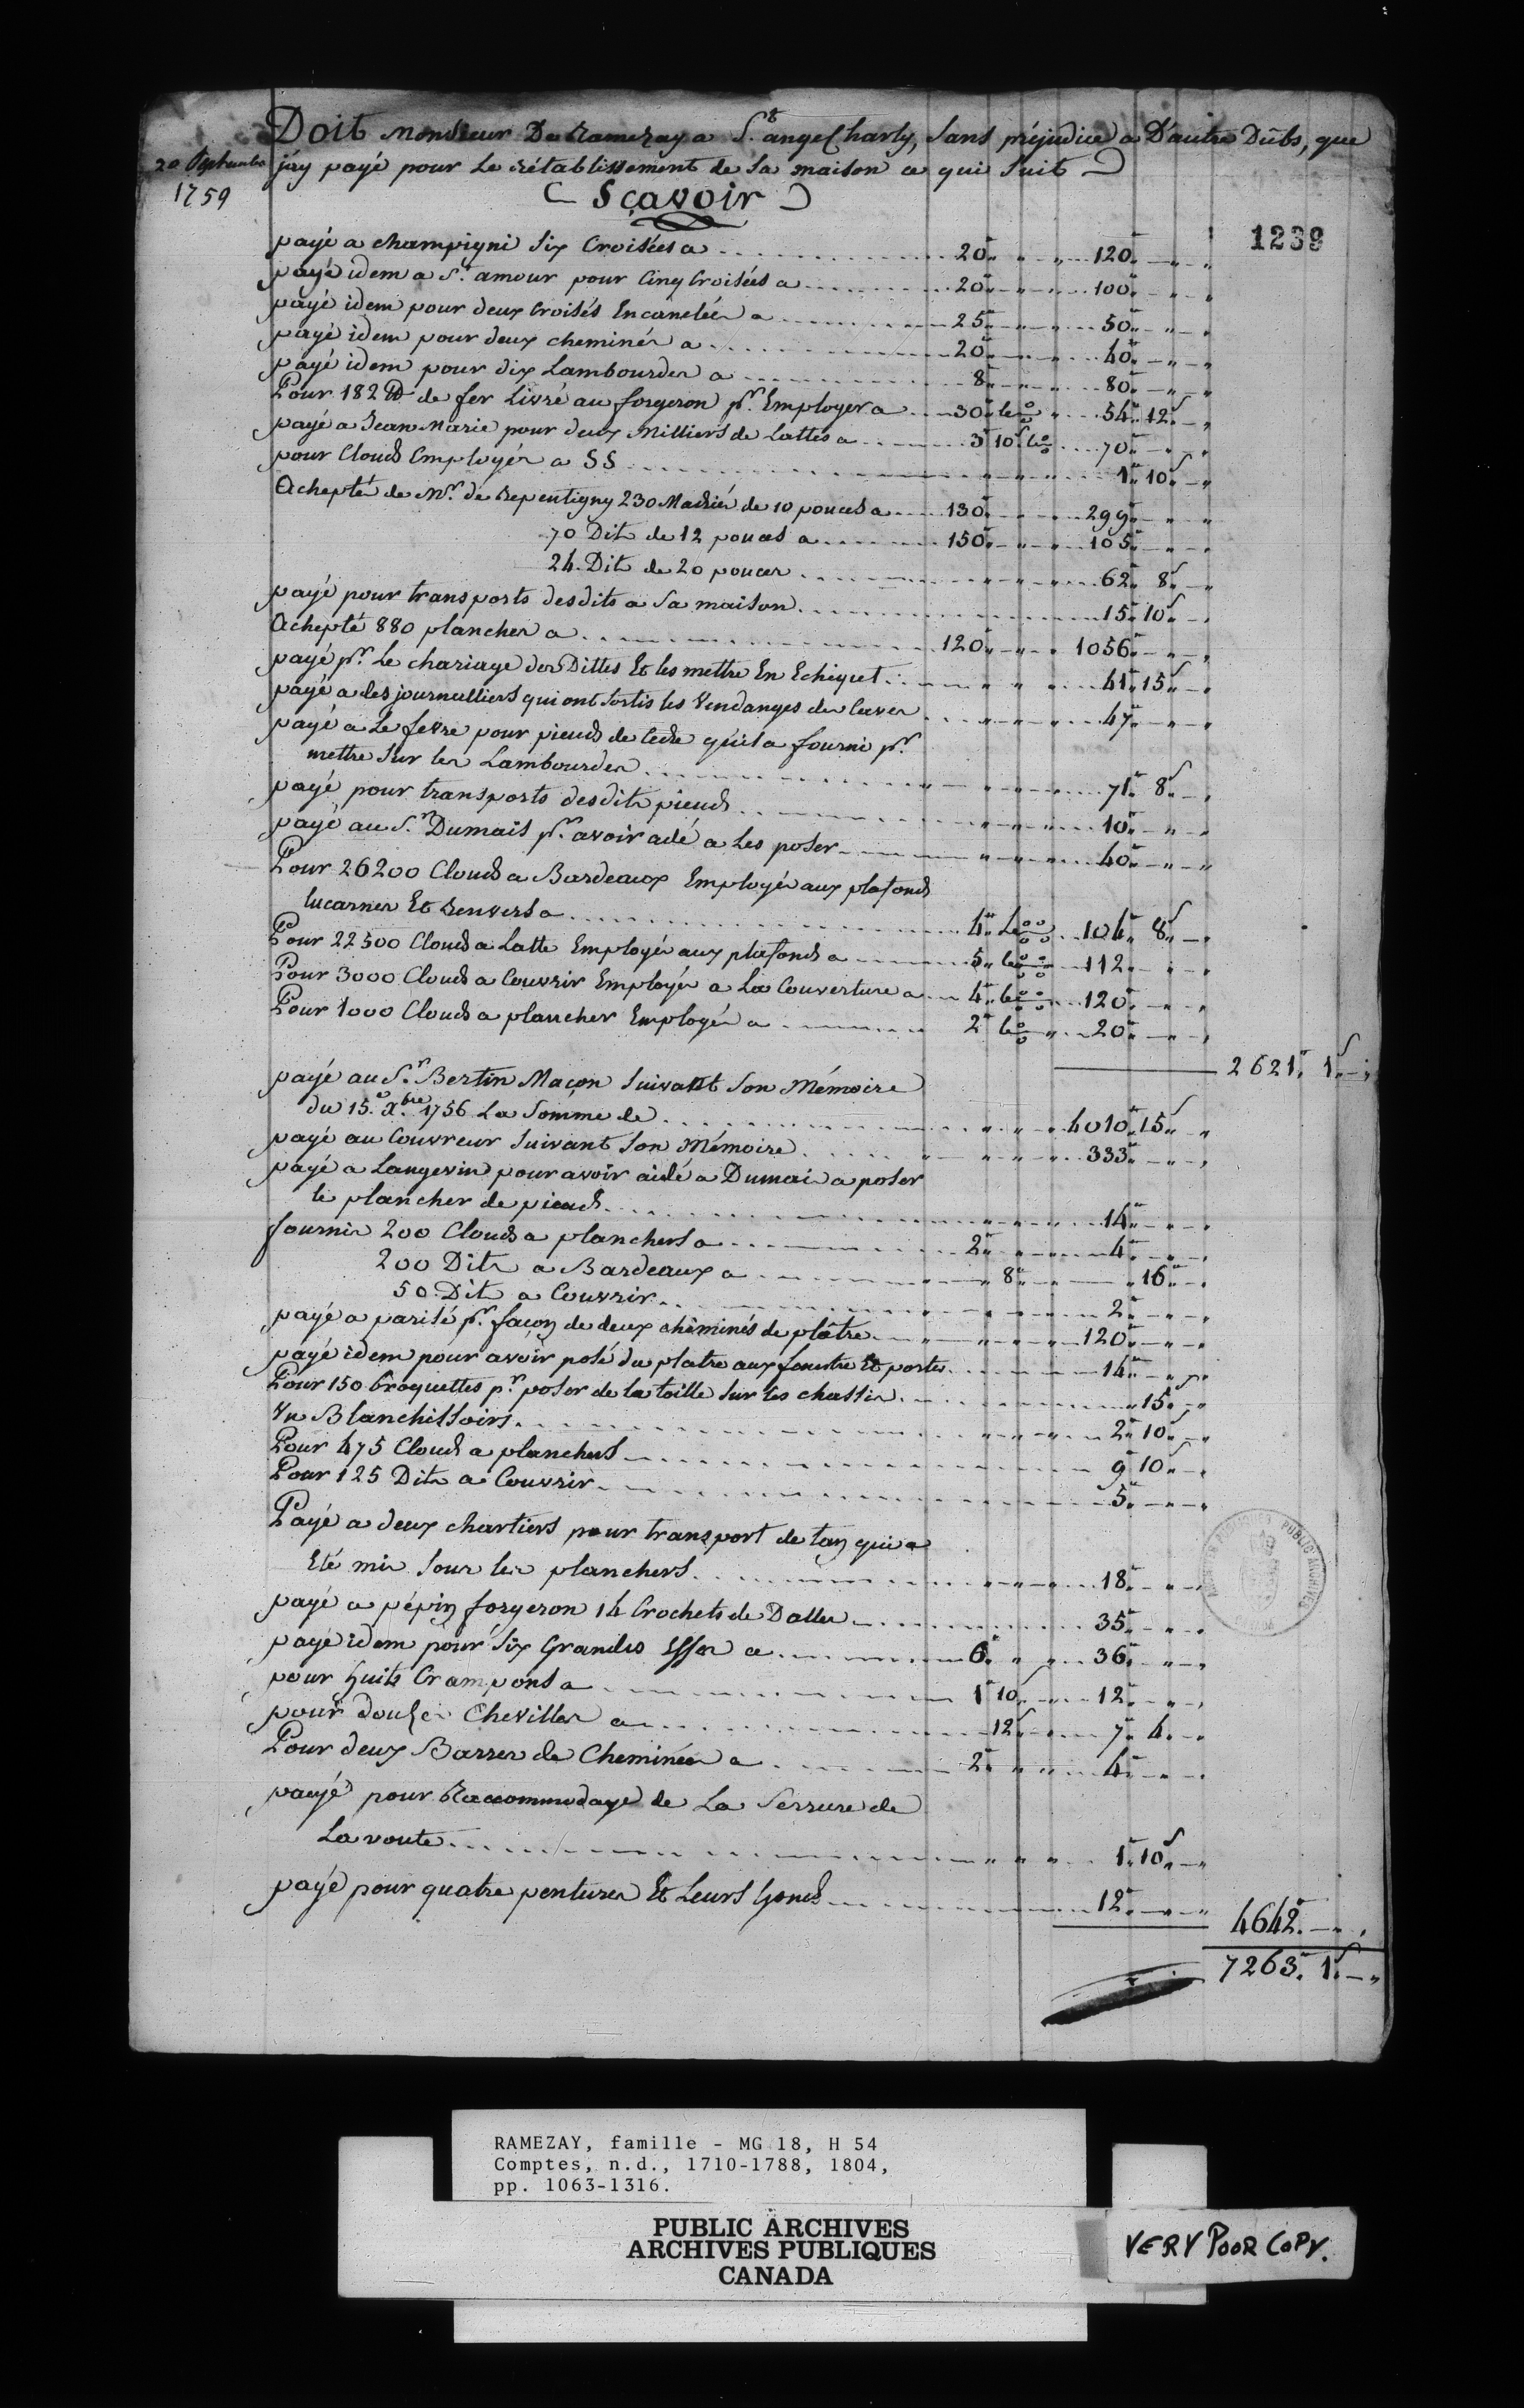 Doit Monsieur De Ramezay a St. ange Charly, Sans préjudice a D'autre Dûbs, que
20 Septembre jay payé pour Le rétablissement de Sa maison ce qui Suit
1759
Sçavoir
1239
payé a champigni Six Croisées a 20" " " 120" " "
payé idem a St. amour pour Cinq Croisées a 20" " " 100" " "
payé idem pour deux Croisés En 25" " " 50" " "
payé idem pour deux cheminés a 20" " " 40" " "
payé idem pour dix Lambourdes a 8" " " 80" " "
Pour 182 ℔ de fer Livré au forgeron pr. Employer a 30" le % " 54" 12s "
payé a Jean Marie pour deux Milliers de Lattes a 3" 10s le % 70" " "
pour Clouds Employés a SS " " " 1" 10s "
Achepté de Mr. de Repentigny 230 Madriés de 10 pouces a 130" " " 299" " "
70 Dits de 12 pouces a 150" " " 105" " "
24 Dits de 20 pouces " " " 62" 8s "
payé pour transports desdits a Sa maison 15" 10s "
Achepté 880 planches a 120" " " 1056" " "
payé pr. Le chariage des Dittes Et les mettre En Echiquet " " 41" 15s "
payé a des journalliers qui ont Sortis les Vendanges des Caves " " " 47" " "
payé a Le fevre pour pieuds de Cedre qu'il a fourni pr.
mettre Sur les Lambourdes " " " 71" 8s "
payé pour transports desdits pieuds " " " 10" " "
payé au Sr. Dumais pr. avoir aidé a Les poser " " " 40" " "
Pour 26200 Clouds a Bardeaux Employés aux plafonds
lucarnes Et Renvers a 4" le 104" 8s "
Pour 22500 Clouds a Latte Employés aux plafonds a 5" le 112" " "
Pour 3000 Clouds a Couvrir Employés a La Couverture a 4" le 120" " "
Pour 1000 Clouds a plancher Employés a 2" le % " 20" " "
2621" 1s "
payé au Sr. Bertin Maçon Suivant Son Mémoire
du 15e. Xbre. 1756 La Somme de " " " 4010" 15s "
payé au Couvreur Suivant Son Mémoire " " " " 333" " "
payé a Langevin pour avoir aidé a Dumais a poser
le plancher de pieuds " " " 14" " "
fournis 200 Clouds a planchers a 2" " " 4" " "
200 Dits a Bardeaux a " 8" " " 16" "
50 Dits a Couvrir " " " 2" " "
payé a parisé pr. façon de deux cheminés de plâtre " " " 120" " "
payé idem pour avoir posé du platre aux fenestre Et portes 14" " "
Pour 150 Broquettes pr. poser de la toille Sur les chassis " 15s "
Un Blanchissoirs " " " 2" 10s "
Pour 475 Clouds a planchers 9" 10s "
Pour 125 Dits a Couvrir 5" " "
Payé a deux chartiers pour transport de tan qui a
Eté mis Sous les planchers " " " 18" " "
payé a pépin forgeron 14 Crochets de Dalles 35" " "
payé idem pour Six Grandes Esses a 6" " " 36" " "
pour huits Crampons a 1" 10s " 12" " "
pour douze Chevilles a 12s " 7" 4 "
Pour deux Barres de Cheminée a 2" " " 4" " "
payé pour Raccommodage de La Serrure de
La voute " " " 1" 10s "
payé pour quatre pentures Et Leurs Gonds 12" " "
4642" " "
7263" 1s "
ARCHIVES PUBLIQUES PUBLIC ARCHIVES
CANADA
RAMEZAY, famille - MG 18, H 54
Comptes, n.d., 1710-1788, 1804,
pp. 1063-1316.
PUBLIC ARCHIVES
ARCHIVES PUBLIQUES
CANADA
VERY POOR COPY.